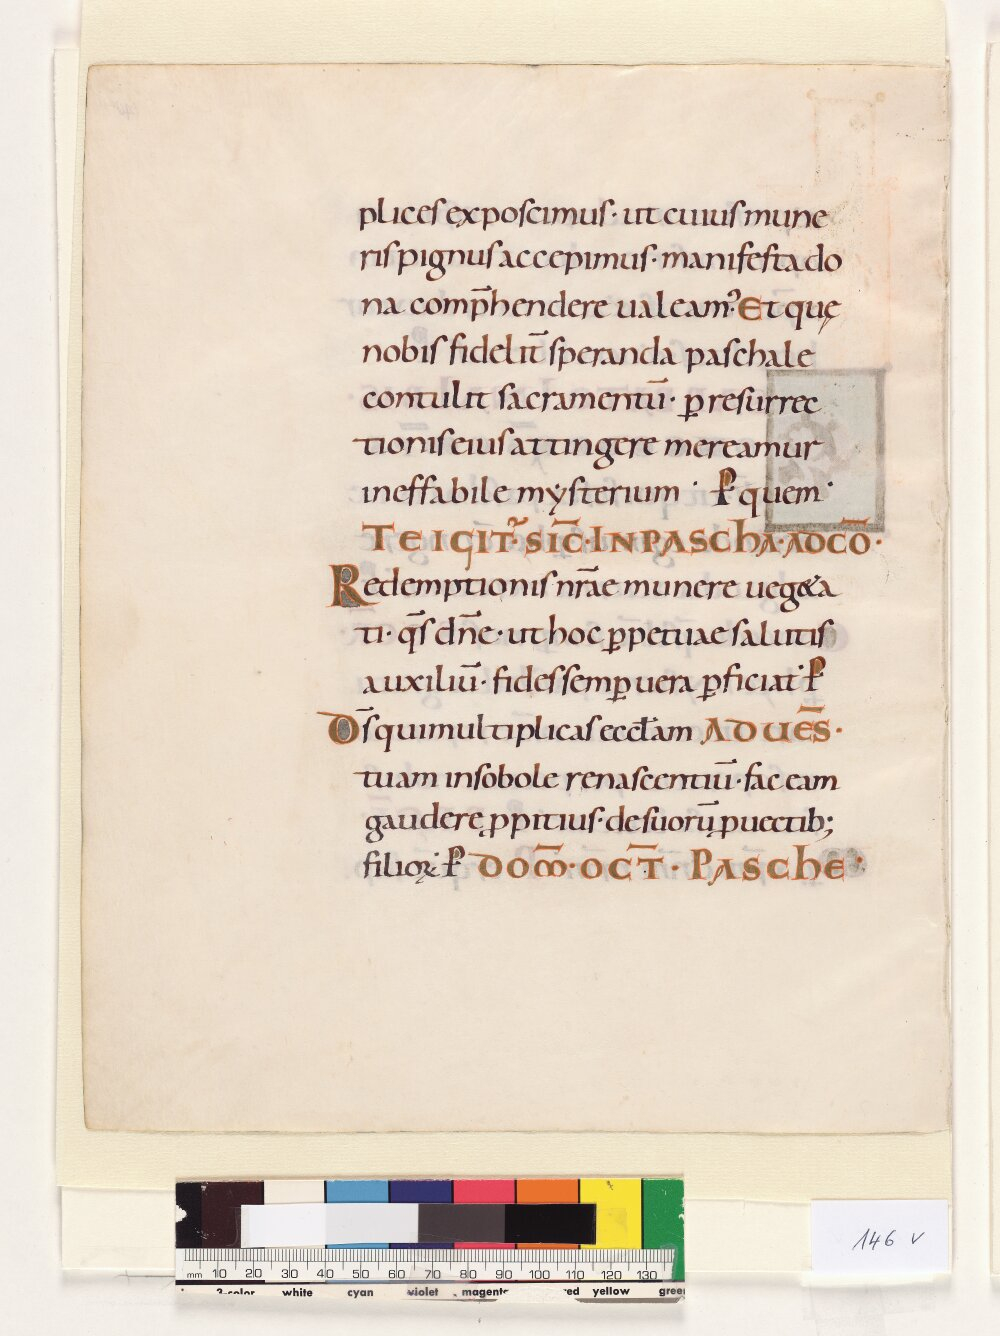 plices exposcimus· ut cuius mune
ris pignus accepimus· manifesta do
na comp̄hendere ualeam᾽? Et que̜
nobis fidelit̄ speranda paschale
contulit sacramentū· p̲ resurrec
tionis eius attingere mereamur
ineffabile mẏsterium· P̲ quem·
SIC̄· IN PASCHA· AD CŌ·
Redemptionis nr̄ae munere ueget&a
ti· qs̄ dn̄e· ut hoc p̲petuae salutis
auxiliū· fides semp̲ uera p̲ficiat· P̲
Ds̄ qui multiplicas eccl̄am AD UES̄·
tuam in sobole renascentiū· fac eam
gaudere p̲pitius· de suorū puectib;
filioꝝ· P̲ DOM̄· OCT̄· PASCHE·
mm 10 20 30 40 50 60 70 80 90 100 110 120 130
3-color white cyan violet magenta red yellow green
146 v